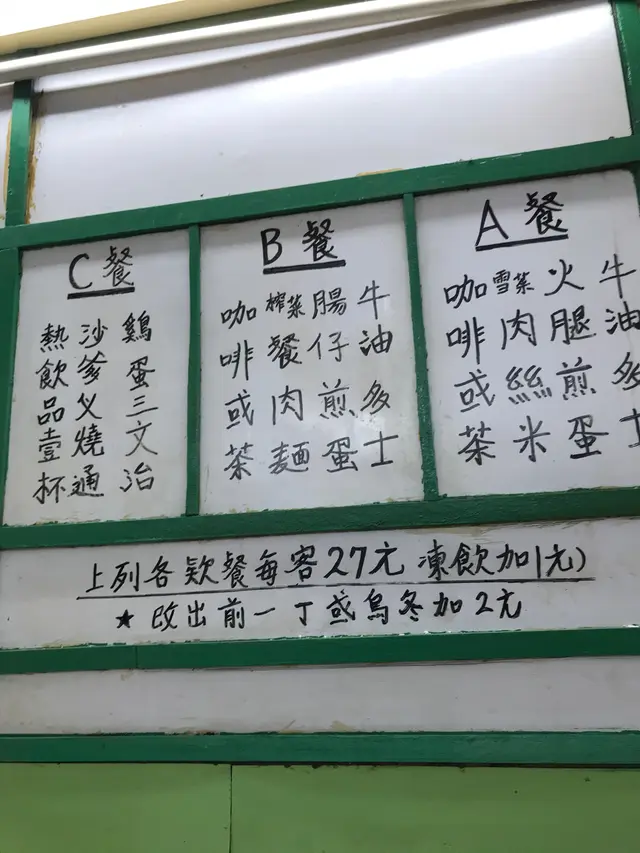 A餐
牛油多士
火腿煎蛋
雪菜肉絲米
咖啡或茶
B餐
牛油多士
腸仔煎蛋
榨菜餐肉麵
咖啡或茶
C餐
鷄蛋三文治
沙爹叉燒通
熱飲品壹杯
上列各欵餐每客27元 凍飲加1元)
★ 改出前一丁或烏冬加2元